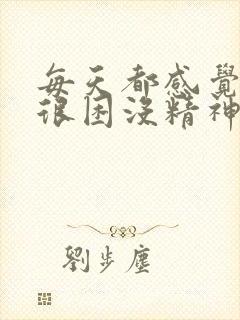 每天都感覺
很困沒精神
劉步塵